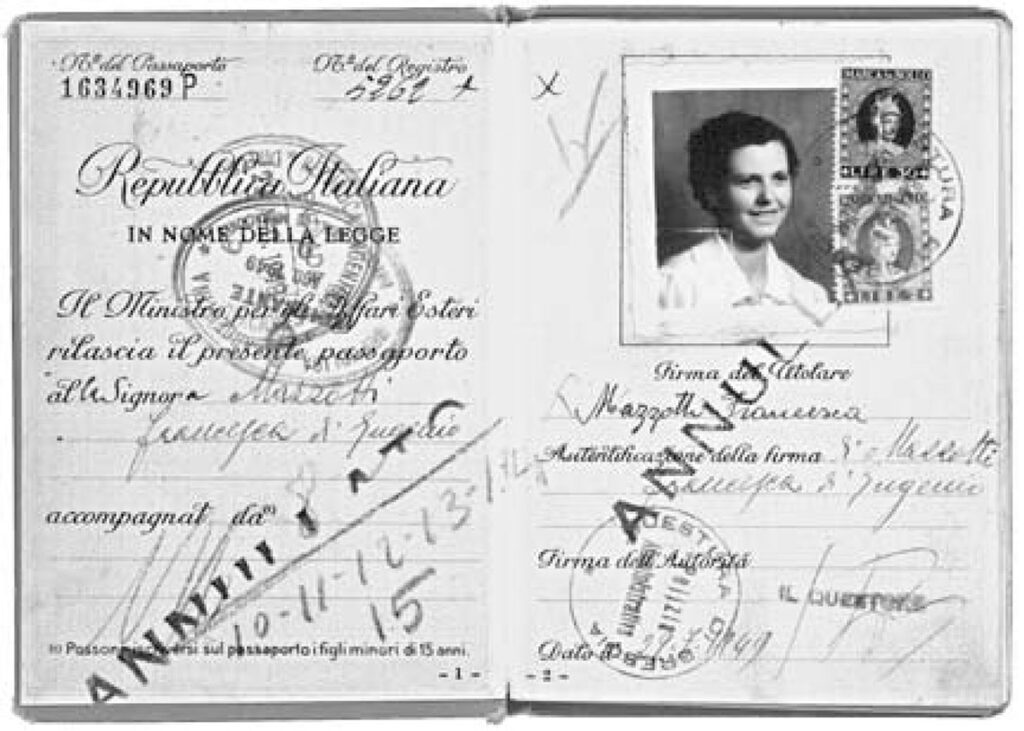 N.º del Passaporto
1634969 P
N.º del Registro
5262
Repubblica Italiana
IN NOME DELLA LEGGE
Il Ministro per gli Affari Esteri
rilascia il presente passaporto
al la Signora Mazzotti
Francesca di Eugenio
accompagnat da (1)
10-11-12-13-14
15
ANNULLATO
(1) Possono iscriversi sul passaporto i figli minori di 15 anni.
- 1 -
X
MARCA DA BOLLO
LIRE
LIRE
Firma del Titolare
Mazzotti Francesca
Autentificazione della firma di Mazzotti
Francesca di Eugenio
ANNUL
QUESTURA DI BRESCIA
Firma dell'Autorità
IL QUESTORE
Dato a
1949
- 2 -